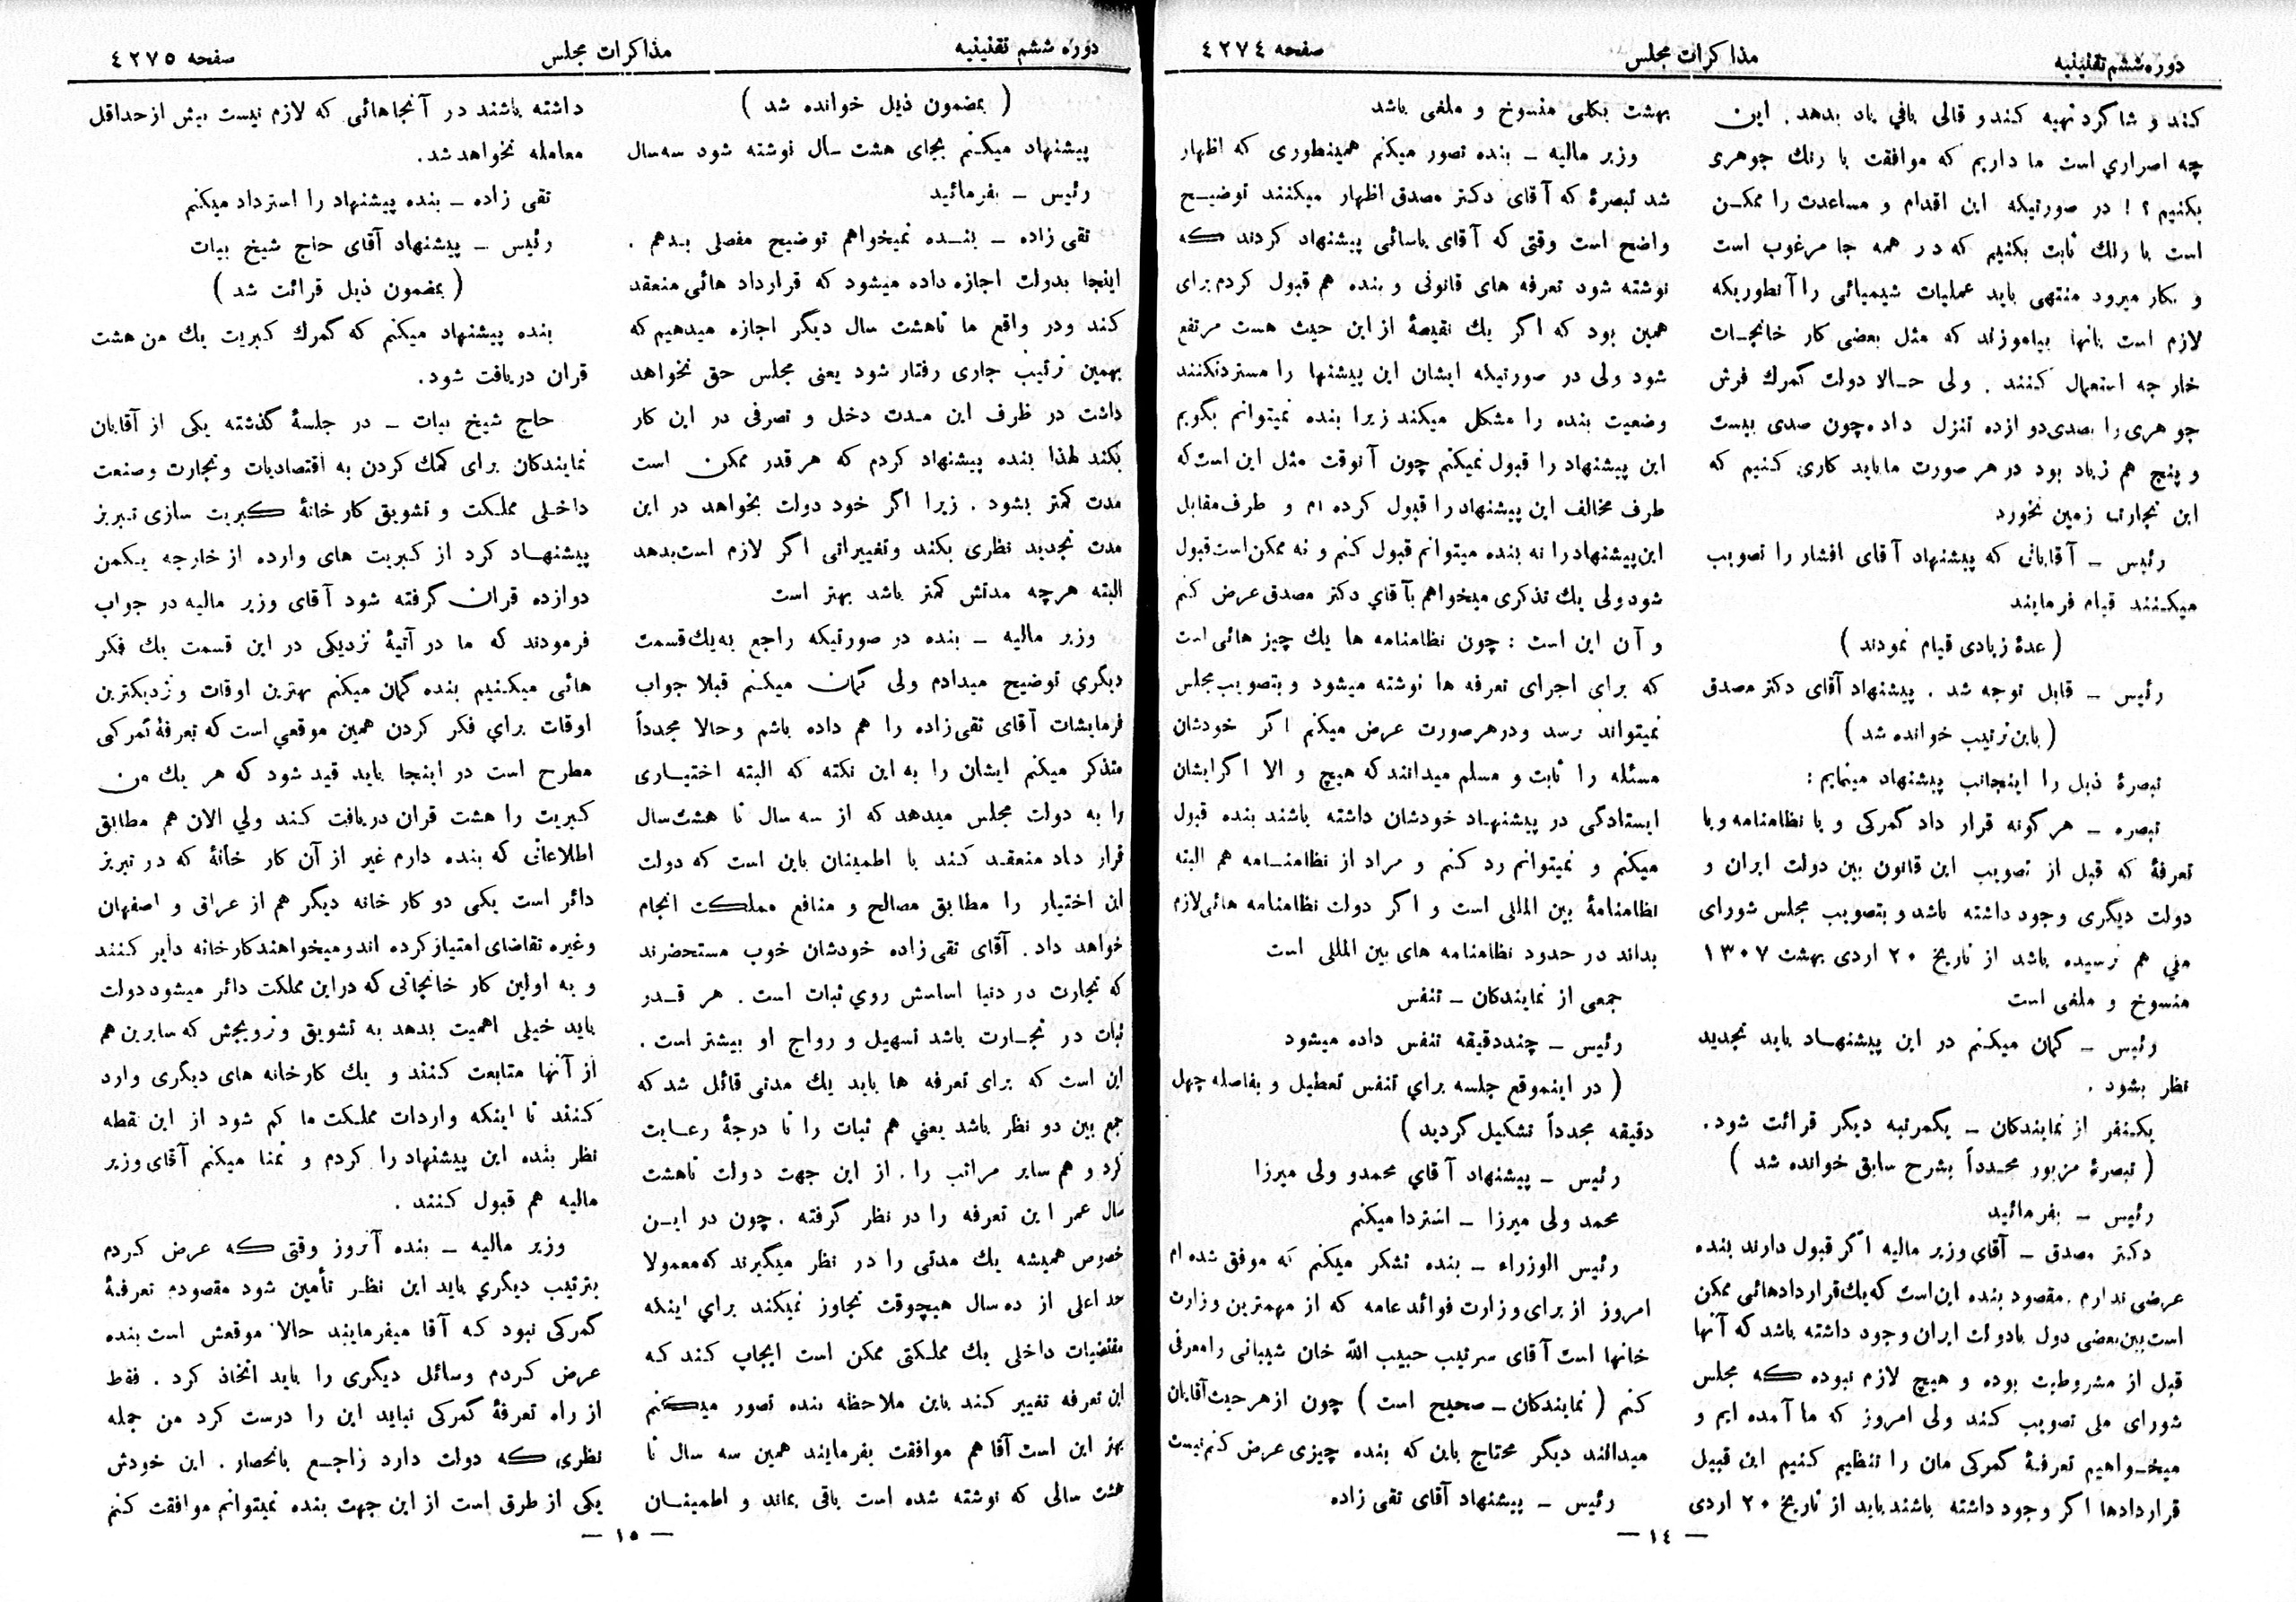 دوره ششم تقنینیه
مذاکرات مجلس
صفحه ٤٢٧٤
کنند و شاگرد تهیه کنند و قالی بافي یاد بدهد . این
چه اصراري است ما داریم که موافقت با رنك جوهری
بکنیم ؟ ! در صورتیکه این اقدام و مساعدت را ممکـن
است با رنك ثابت بکنیم که در همه جا مرغوب است
و بکار میرود منتهی باید عملیات شیمیائی را آنطوریکه
لازم است بانها بیاموزند که مثل بعضی کار خانجـات
خارجه استعمال کنند . ولی حـالا دولت گمرك فرش
جوهری را بصدی دوازده تنزل داده چون صدی بیست
و پنج هم زیاد بود در هر صورت ما باید کاری کنیم که
این تجارت زمین نخورد
رئیس ـ آقایانی که پیشنهاد آقای افشار را تصویب
میکـنند قیام فرمایند
( عدهٔ زیادی قیام نمودند )
رئیس ـ قابل توجه شد . پیشنهاد آقای دکتر مصدق
( باین ترتیب خوانده شد )
تبصرهٔ ذیل را اینجانب پیشنهاد مینمایم :
تبصره ـ هر گونه قرار داد گمرکی و یا نظامنامه و یا
تعرفهٔ که قبل از تصویب این قانون بین دولت ایران و
دولت دیگری وجود داشته باشد و بتصویب مجلس شورای
ملي هم نرسیده باشد از تاریخ ٢٠ اردی بهشت ١٣٠٧
منسوخ و ملغی است
رئیس ـ گمان میکـنم در این پیشنهـاد باید تجدید
نظر بشود .
یکـنفر از نمایندکان ـ یکمرتبه دیگر قرائت شود .
( تبصرهٔ مزبور مجـدداً بشرح سابق خوانده شد )
رئیس ـ بفرمائید
دکتر مصدق ـ آقای وزیر مالیه اگر قبول دارند بنده
عرضی ندارم . مقصود بنده این است که یك قراردادهائی ممکن
است بین بعضی دول با دولت ایران وجود داشته باشد که آنها
قبل از مشروطیت بوده و هیچ لازم نبوده که مجلس
شورای ملی تصویب کند ولی امروز که ما آمده ایم و
میخـواهیم تعرفهٔ گمرکی مان را تنظیم کنیم این قبیل
قراردادها اگر وجود داشته باشند باید از تاریخ ٢٠ اردی
بهشت بکلی منسوخ و ملغی باشد
وزیر مالیه ـ بنده تصور میکنم همینطوری که اظهار
شد تبصرهٔ که آقای دکتر مصدق اظهار میکنند توضیـح
واضح است وقتی که آقای یاسائی پیشنهاد کردند که
نوشته شود تعرفه های قانونی و بنده هم قبول کردم برای
همین بود که اگر یك نقیصهٔ از این حیث هست مرتفع
شود ولی در صورتیکه ایشان این پیشنها را مسترد نکنند
وضعیت بنده را مشکل میکند زیرا بنده نمیتوانم بگویم
این پیشنهاد را قبول نمیکنم چون آنوقت مثل این است که
طرف مخالف این پیشنهاد را قبول کرده ام و طرف مقابل
این پیشنهاد را نه بنده میتوانم قبول کنم و نه ممکن است قبول
شود ولی یك تذکری میخواهم بآقاي دکتر مصدق عرض کنم
و آن این است : چون نظامنامه ها یك چیز هائی است
که برای اجرای تعرفه ها نوشته میشود و بتصویب مجلس
نمیتواند رسد و در هر صورت عرض میکنم اگر خودشان
مسئله را ثابت و مسلم میدانند که هیچ و الا اگر ایشان
ایستادگی در پیشنهـاد خودشان داشته باشند بنده قبول
میکنم و نمیتوانم رد کنم و مراد از نظامنـامه هم البته
نظامنامهٔ بین المللی است و اگر دولت نظامنامه هائی لازم
بداند در حدود نظامنامه های بین المللی است
جمعی از نمایندکان ـ تنفس
رئیس ـ چند دقیقه تنفس داده میشود
( در اینموقع جلسه براي تنفس تعطیل و بفاصله چهل
دقیقه مجدداً تشکیل گردید )
رئیس ـ پیشنهاد آقاي محمدو ولی میرزا
محمد ولی میرزا ـ استردا میکنم
رئیس الوزراء ـ بنده تشکر میکنم که موفق شده ام
امروز از برای وزارت فوائد عامه که از مهمترین وزارت
خانها است آقای سرتیب حبیب الله خان شیبانی را معرفی
کنم ( نمایندکان ـ صحیح است ) چون از هر حیث آقایان
میدانند دیگر محتاج باین که بنده چیزی عرض کنم نیست
رئیس ـ پیشنهاد آقای تقی زاده
ـ ١٤ ـ
دوره ششم تقنینیه
مذاکرات مجلس
صفحه ٤٢٧٥
( بمضمون ذیل خوانده شد )
پیشنهاد میکـنم بجای هشت سال نوشته شود سه سال
رئیس ـ بفرمائید
تقی زاده ـ بنـده نمیخواهم توضیح مفصلی بـدهم .
اینجا بدولت اجازه داده میشود که قرارداد هائی منعقد
کند و در واقع ما تا هشت سال دیگر اجازه میدهیم که
بهمین ترتیب جاری رفتار شود یعنی مجلس حق نخواهد
داشت در ظرف این مـدت دخل و تصرفی در این کار
بکند لهذا بنده پیشنهاد کردم که هر قدر ممکن است
مدت کمتر بشود . زیرا اگر خود دولت بخواهد در این
مدت تجدید نظری بکند و تغییراتی اگر لازم است بدهد
البته هرچه مدتش کمتر باشد بهتر است
وزیر مالیه ـ بنده در صورتیکه راجع به یك قسمت
دیگري توضیح میدادم ولی گمان میکـنم قبلا جواب
فرمایشات آقای تقی زاده را هم داده باشم و حالا مجدداً
متذکر میکنم ایشان را به این نکته که البته اختیـاری
را به دولت مجلس میدهد که از سه سال تا هشت سال
قرار داد منعقـد کـند با اطمینان باین است که دولت
این اختیار را مطابق مصالح و منافع مملکت انجام
خواهد داد . آقای تقی زاده خودشان خوب مستحضرند
که تجارت در دنیا اساسش روي ثبات است . هر قـدر
ثبات در تجـارت باشد تسهیل و رواج او بیشتر است .
این است که برای تعرفه ها باید یك مدتی قائل شد که
جمع بین دو نظر باشد یعني هم ثبات را تا درجهٔ رعـایت
کرد و هم سایر مراتب را . از این جهت دولت تا هشت
سال عمر این تعرفه را در نظر گرفته . چون در ایـن
خصوص همیشه یك مدتی را در نظر میگیرند که معمولا
حد اعلی از ده سال هیچوقت تجاوز نمیکند براي اینکه
مقتضیات داخلی یك مملکتی ممکن است ایجاب کـند که
این تعرفه تغییر کـند باین ملاحظه بنده تصور میکنم
بهتر این است آقا هم موافقت بفرمایند همین سه سال تا
هشت سالی که نوشته شده است باقی بماند و اطمینـان
داشته باشند در آنجاهائی که لازم نیست بیش از حداقل
معامله نخواهد شد .
تقی زاده ـ بنده پیشنهاد را استرداد میکنم
رئیس ـ پیشنهاد آقای حاج شیخ بیات
( بمضمون ذیل قرائت شد )
بنده پیشنهاد میکنم که گمرك کبریت یك من هشت
قران دریافت شود .
حاج شیخ بیات ـ در جلسهٔ گذشته یکی از آقایان
نمایندکان برای کمك کردن به اقتصادیات و تجارت و صنعت
داخـلی مملـکت و تشویق کار خانهٔ کبریت سازی تبریز
پیشنهـاد کرد از کبریت های وارده از خارجه یکمن
دوازده قران گرفته شود آقای وزیر مالیه در جواب
فرمودند که ما در آتیهٔ نزدیکی در این قسمت یك فکر
هائی میکـنیم بنده گمان میکنم بهترین اوقات و نزدیکترین
اوقات براي فکر کردن همین موقعي است که تعرفهٔ گمرکی
مطرح است در اینجا باید قید شود که هر یك من
کبریت را هشت قران دریافت کـند ولي الان هم مطابق
اطلاعاتی که بنده دارم غیر از آن کار خانهٔ که در تبریز
دائر است یکی دو کار خانه دیگر هم از عراق و اصفهان
و غیره تقاضای امتیاز کرده اند و میخواهند کارخانه دایر کـنند
و به اولین کار خانجاتی که در این مملکت دائر میشود دولت
باید خیلی اهمیت بدهد به تشویق و ترویجش که سایرین هم
از آنها متابعت کـنند و یك کارخانه های دیگری وارد
کـنند تا اینکه واردات مملـکت ما کم شود از این نقطه
نظر بنده این پیشنهاد را کردم و تمنا میکنم آقای وزیر
مالیه هم قبول کـنند .
وزیر مالیه ـ بنده آنروز وقتی که عرض کـردم
بترتیب دیگري باید این نظـر تأمین شود مقصودم تعرفـهٔ
گمرکی نبود کـه آقا میفرمایند حالا موقعش است بنده
عرض کـردم وسائل دیگری را باید اتخاذ کرد . فقط
از راه تعرفهٔ گمرکی نباید این را درست کرد من جمله
نظری که دولت دارد راجـع بانحصار . این خودش
یکی از طرق است از این جهت بنده نمیتوانم موافقت کنم
ـ ١٥ ـ